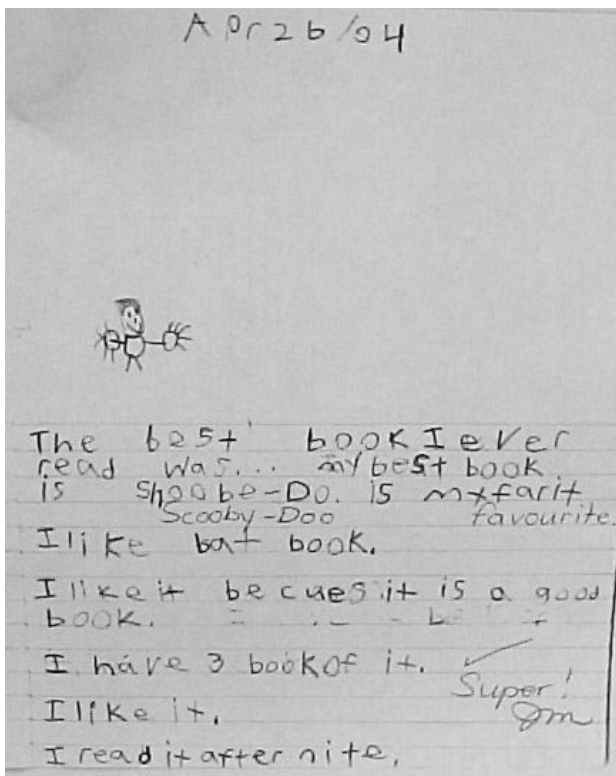 Apr 26/04
The best book I ever
read was... my best book
is Shoobe-Do. is my farit
Scooby-Doo favourite.
I like bat book.
I like it becues it is a good
book.
I have 3 book of it.
Super!
Jm
I like it.
I read it after nite.